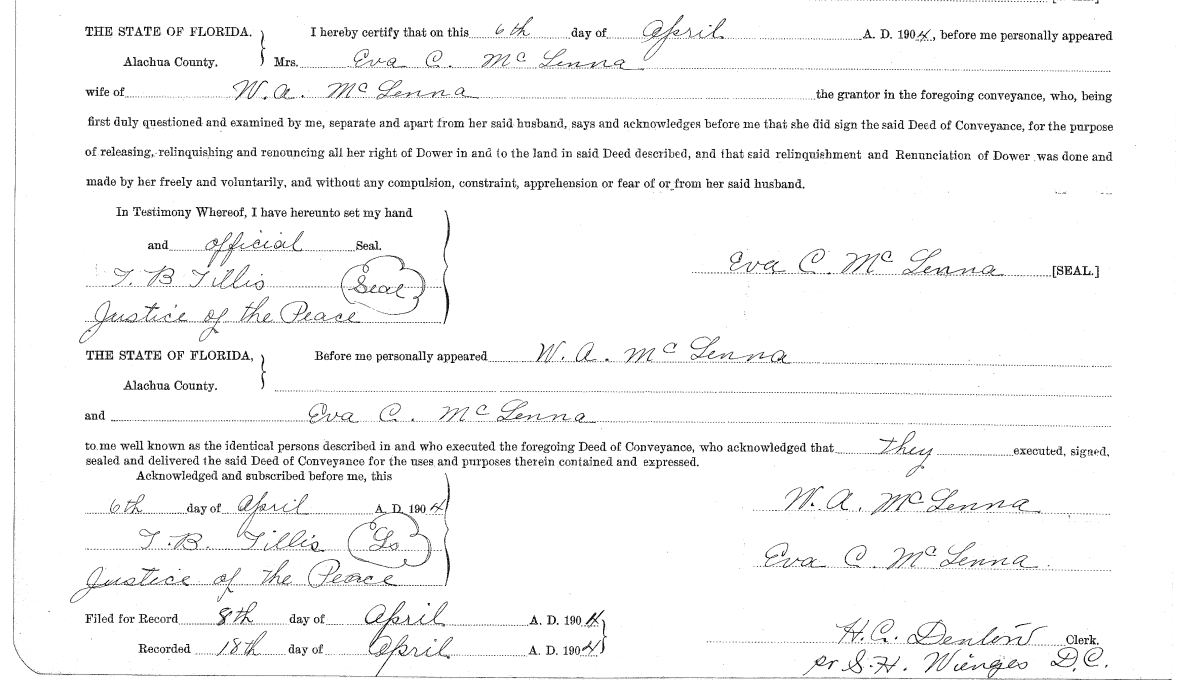 THE STATE OF FLORIDA. I hereby certify that on this 6th day of April A. D. 1904, before me personally appeared
Alachua County. Mrs. Eva C. McLenna
wife of W. A. McLenna the grantor in the foregoing conveyance, who, being
first duly questioned and examined by me, separate and apart from her said husband, says and acknowledges before me that she did sign the said Deed of Conveyance, for the purpose
of releasing, relinquishing and renouncing all her right of Dower in and to the land in said Deed described, and that said relinquishment and Renunciation of Dower was done and
made by her freely and voluntarily, and without any compulsion, constraint, apprehension or fear of or from her said husband.
In Testimony Whereof, I have hereunto set my hand
and official Seal.
Eva C. McLenna [SEAL.]
T. B Tillis Seal
Justice of the Peace
THE STATE OF FLORIDA, Before me personally appeared W. A. McLenna
Alachua County.
and Eva C. McLenna
to me well known as the identical persons described in and who executed the foregoing Deed of Conveyance, who acknowledged that they executed, signed,
sealed and delivered the said Deed of Conveyance for the uses and purposes therein contained and expressed.
Acknowledged and subscribed before me, this
6th day of April A. D. 1904 W. A. McLenna
T. B. Tillis Ls
Eva C. McLenna
Justice of the Peace
Filed for Record 8th day of April A. D. 1904
H. C. Denton Clerk.
Recorded 18th day of April A. D. 1904
pr S. H. Wienges D.C.